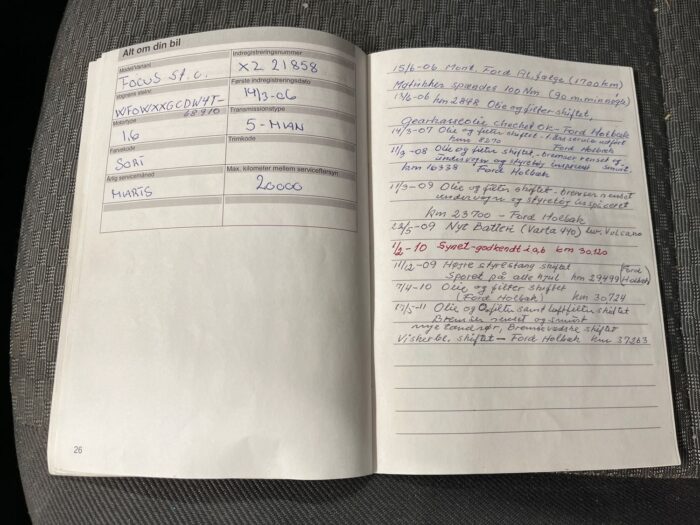 Alt om din bil
Model/Variant
Indregistreringsnummer
Focus St. c.
XZ 21858
Første indregistreringsdato
14/3-06
WFOWXXGCDW4T-
68910
Motortype
Transmissionstype
1,6
5-MAN
Farvekode
Trimkode
SORT
Årlig servicemåned
Max. kilometer mellem serviceeftersyn
MARTS
20000
26
15/6-06 Mont. Ford Al.fælge (1700 km)
Møtrikker spændes 100 Nm (90 m.min nøgle)
km 2848 Olie og filter skiftet,
Gearkasseolie checket OK - Ford Holbæk
14/3-07 Olie og filter skiftet - 1 års service udført
km 8270 Ford Holbæk
11/3-08 Olie og filter skiftet - bremser renset og
undervogn og styretøj inspiceret smurt
km 16338 Ford Holbæk
11/3-09 Olie og filter skiftet - Bremser renset
undervogn og styretøj inspiceret
km 23700 - Ford Holbæk
22/5-09 Nyt Batteri (Varta 440) lev. Vulcano
1/2-10 Synet-godkendt i a,b km 30,120
11/12-09 Højre styrestang skiftet
Sporet på alle hjul km 29499 (Ford Holbæk
7/4-10 Olie og filter skiftet
(Ford Holbæk) km 30724
17/3-11 Olie og filter samt luftfilter skiftet
Bremser renset og smurt
nye tændrør, Bremsevædske skiftet
Viskerbl. skiftet - Ford Holbæk km 37263